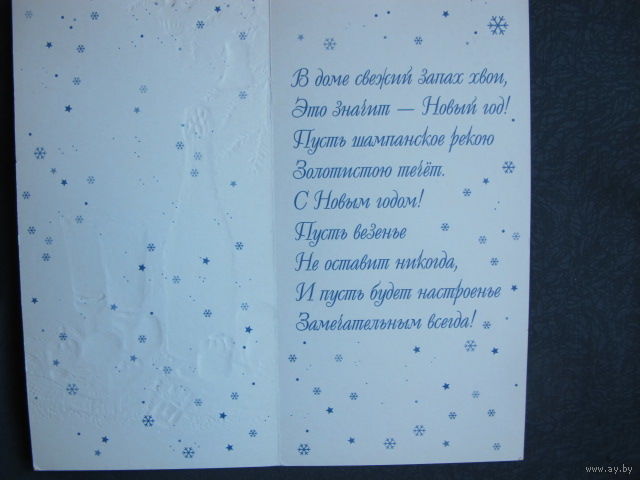 В доме свежий запах хвои,
Это значит — Новый год!
Пусть шампанское рекою
Золотистою течёт.
С Новым годом!
Пусть везенье
Не оставит никогда,
И пусть будет настроенье
Замечательным всегда!
www.ay.by